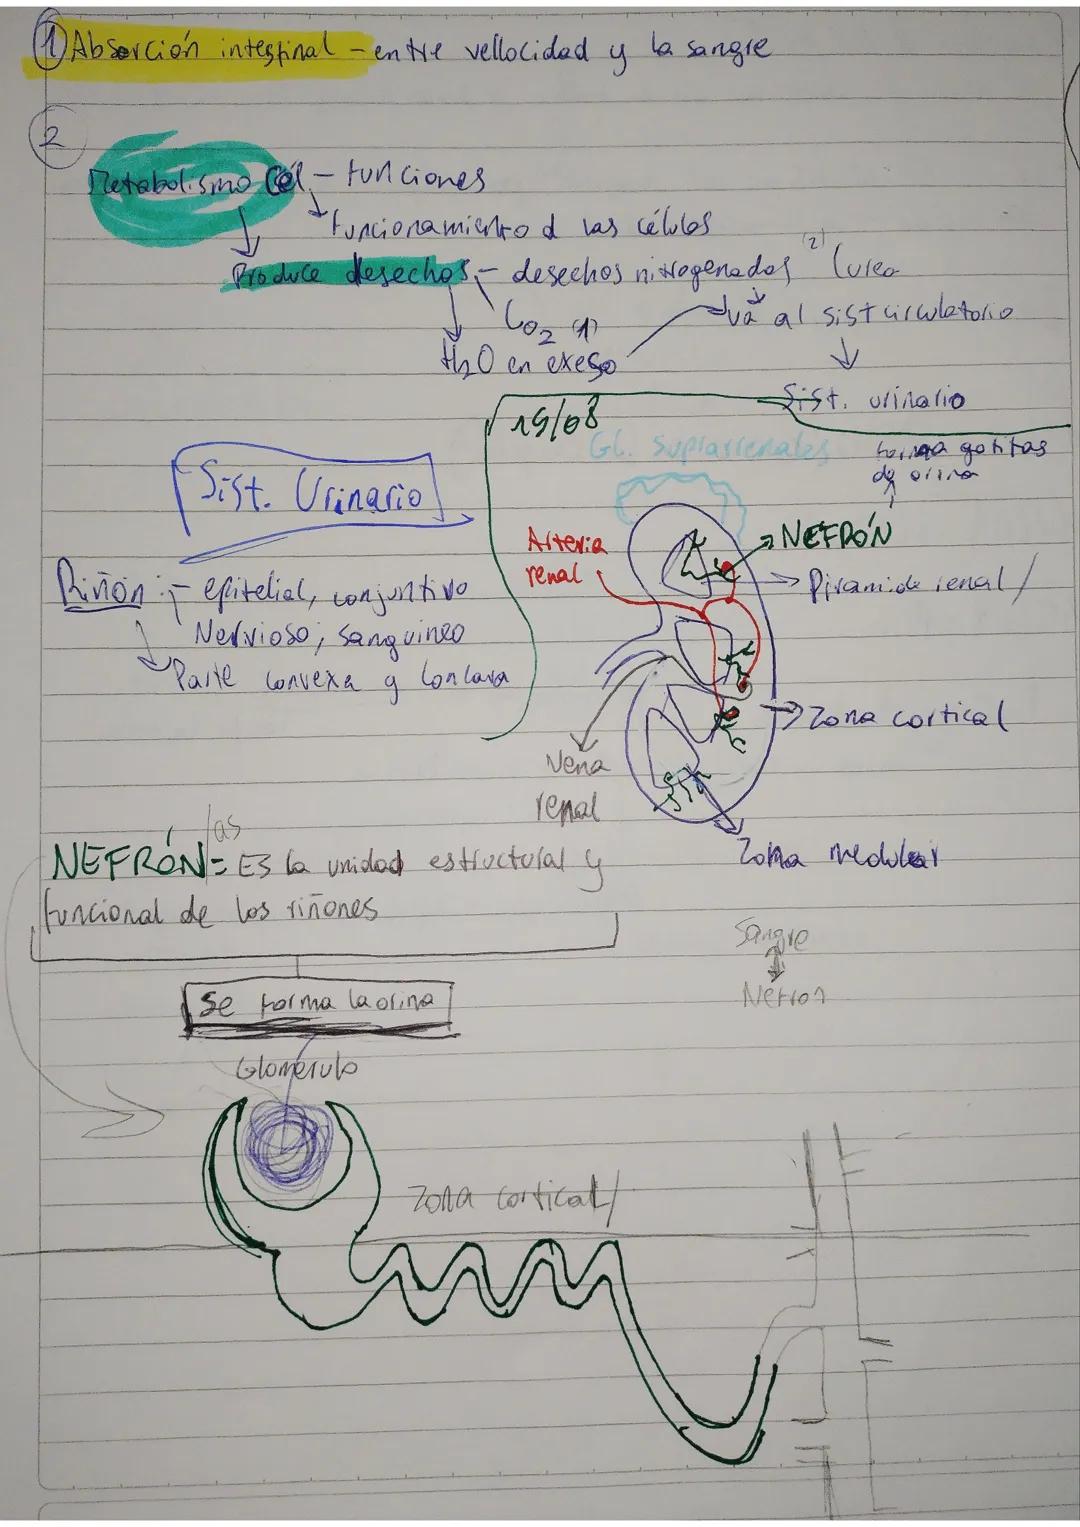 ① Absorción intestinal - entre vellocidad y la sangre
②
Metabolismo Cél - funciones
Funcionamiento d las células
Produce desechos - desechos nitrogenados (2) (urea
CO2 (1)
va al sist circulatorio
H2O en exeso
Sist. urinario
19/08
Gl. suprarrenales
forma gotitas
de orina
Sist. Urinario
Arteria
renal
NEFRÓN
Riñón: - epitelial, conjuntivo
Piramide renal/
Nervioso, sanguineo
Parte convexa y concava
Zona cortical
Vena
renal
Zona medular
NEFRÓN/as = ES la unidad estructural y
funcional de los riñones
Sangre
Nefron
Se forma la orina
Glomérulo
Zona cortical/